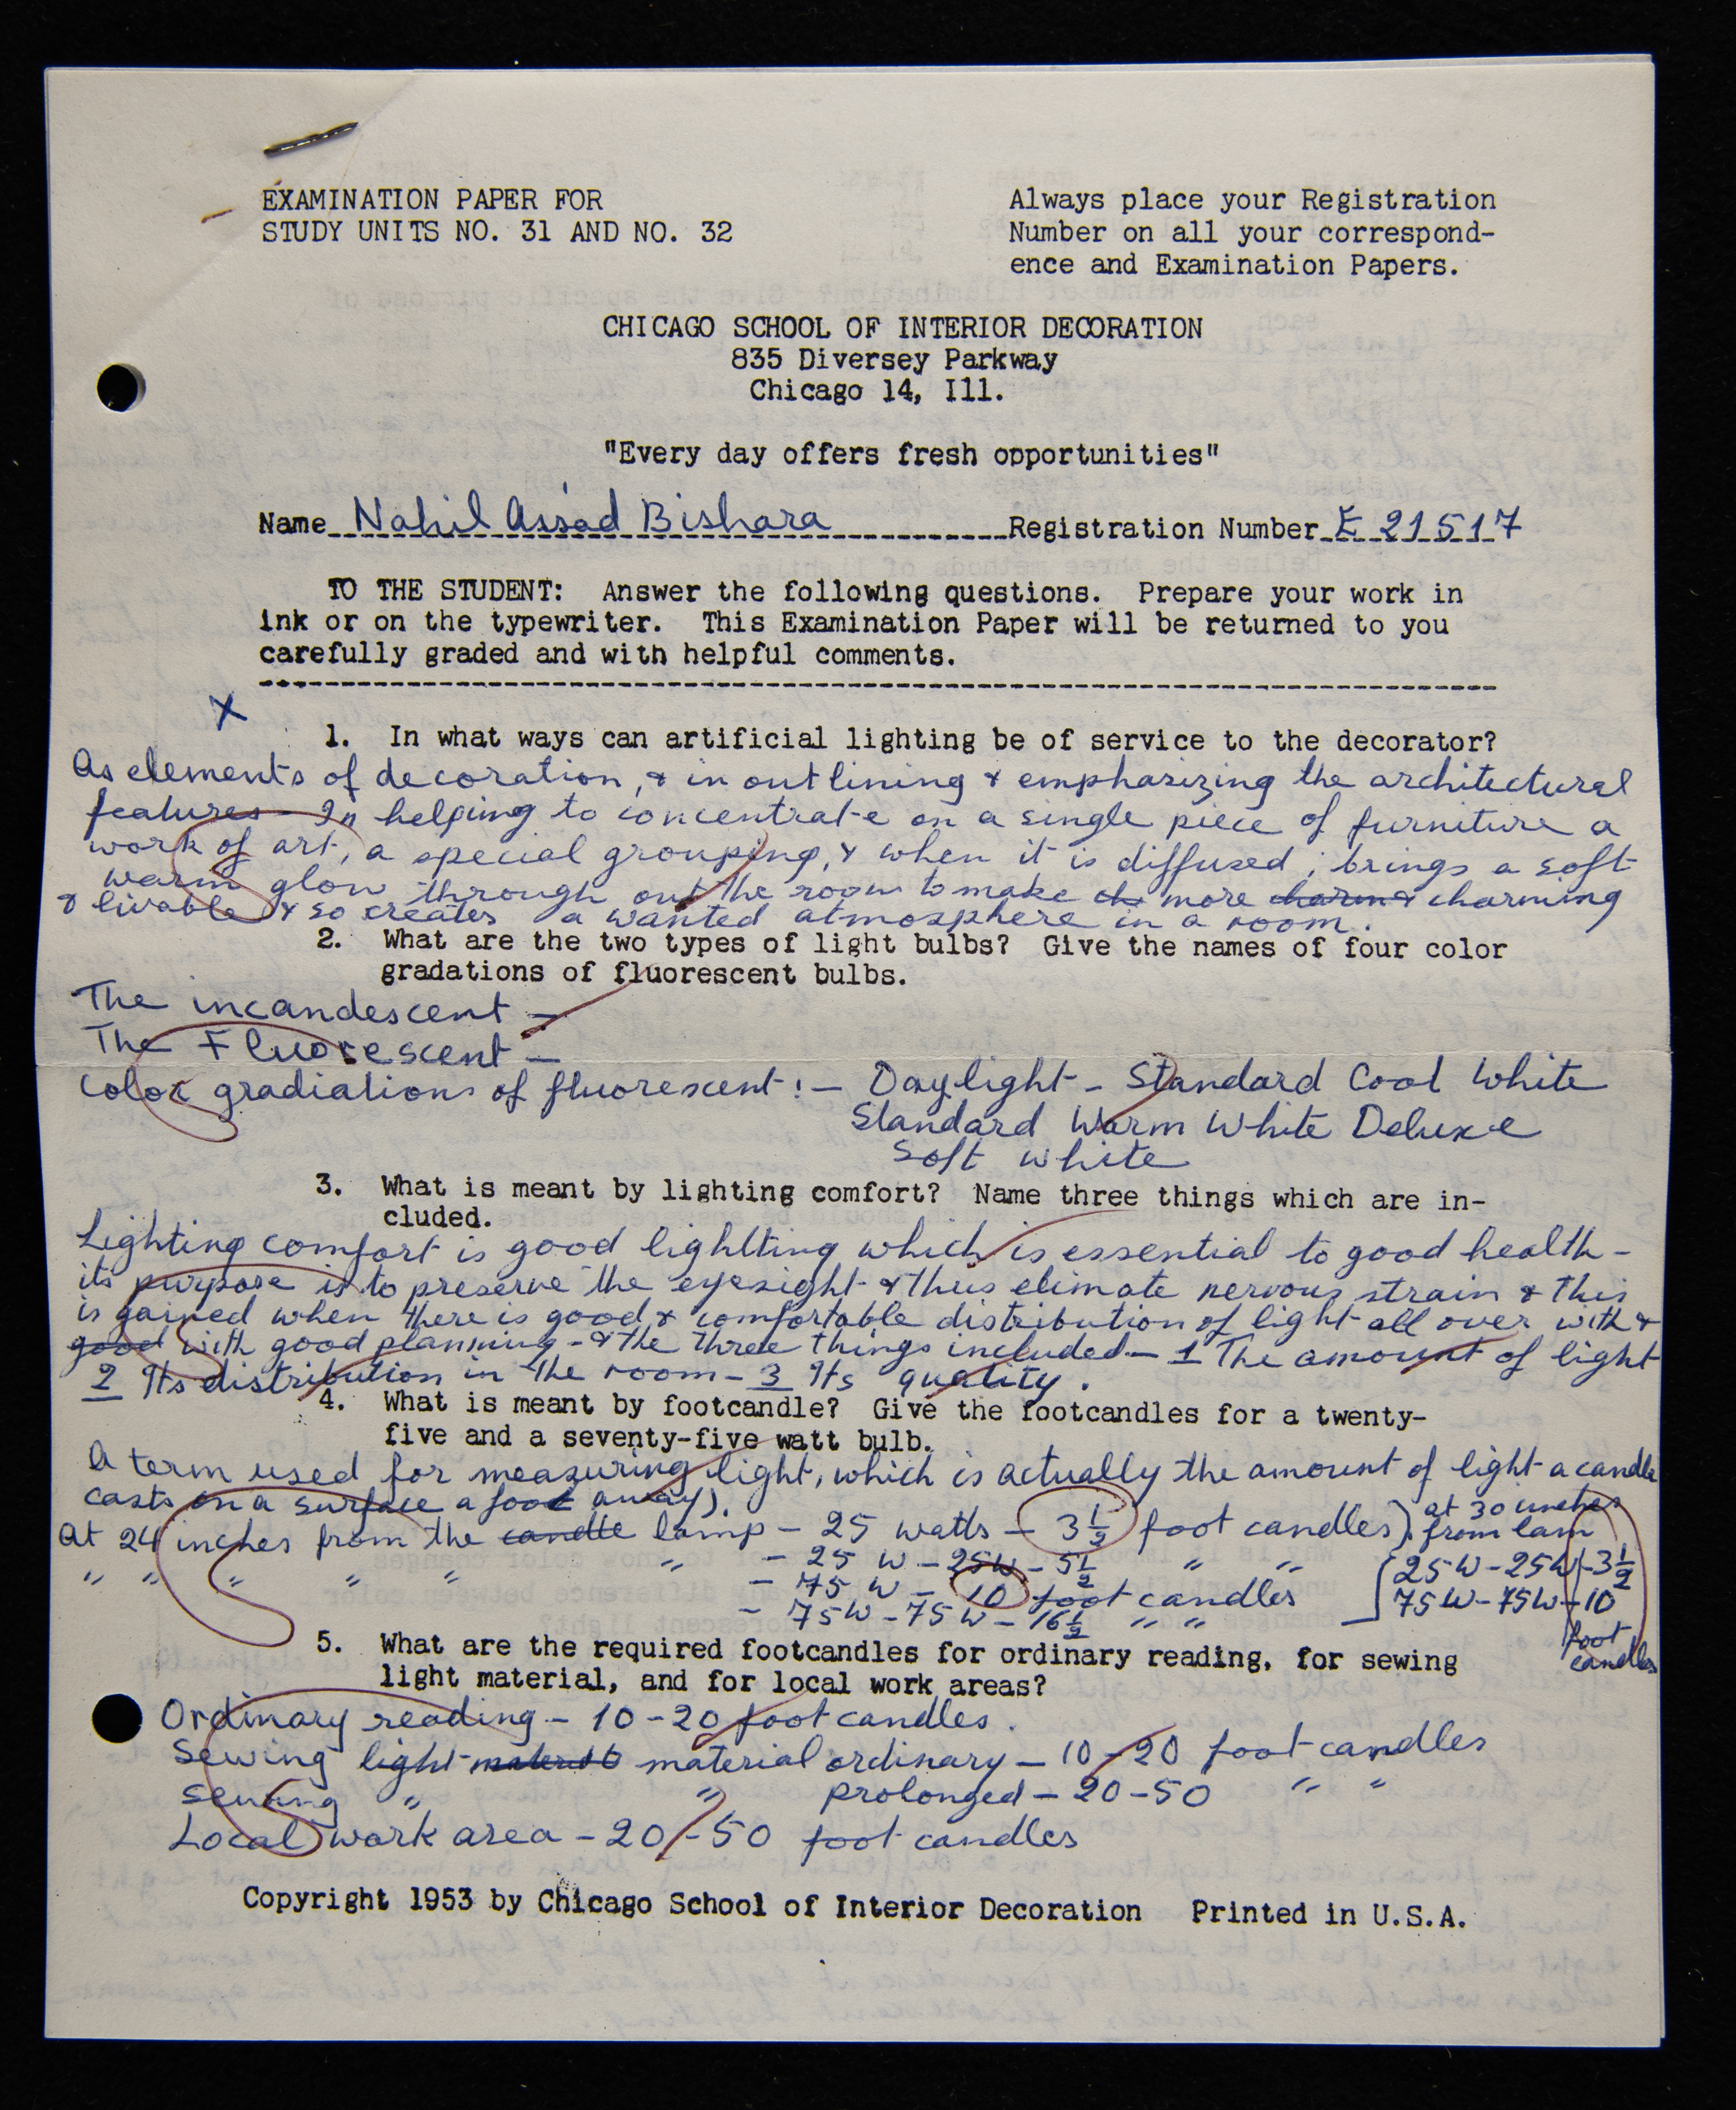 EXAMINATION PAPER FOR
STUDY UNITS NO. 31 AND NO. 32
Always place your Registration
Number on all your correspond-
ence and Examination Papers.
CHICAGO SCHOOL OF INTERIOR DECORATION
835 Diversey Parkway
Chicago 14, Ill.
"Every day offers fresh opportunities"
Name Nahil Assad Bishara Registration Number E 21517
TO THE STUDENT: Answer the following questions. Prepare your work in
ink or on the typewriter. This Examination Paper will be returned to you
carefully graded and with helpful comments.
X
1. In what ways can artificial lighting be of service to the decorator?
As elements of decoration, & in outlining & emphasizing the architectural
features - In helping to concentrate on a single piece of furniture a
work of art, a special grouping, & when it is diffused, brings a soft
warm glow through out the room to make more charming
& livable & so creates a wanted atmosphere in a room.
2. What are the two types of light bulbs? Give the names of four color
gradations of fluorescent bulbs.
The incandescent -
The Fluorescent -
Color gradiations of fluorescent :- Daylight - Standard Cool White
Standard Warm White Deluxe
Soft white
3. What is meant by lighting comfort? Name three things which are in-
cluded.
Lighting comfort is good lightting which is essential to good health -
its purpose is to preserve the eyesight & thus elimate nervous strain & this
is gained when there is good & comfortable distribution of light all over with &
good with good planning - & the three things included - 1 The amount of light
2 Its distribution in the room - 3 Its quality.
4. What is meant by footcandle? Give the footcandles for a twenty-
five and a seventy-five watt bulb.
A term used for measuring light, which is actually the amount of light a candle
casts on a surface a foot away).
At 24 inches from the candle lamp - 25 watts - 3 1/2 foot candles). at 30 inches
from lam
" " " " " " - 25 W - 25W - 5 1/2 " " 25W - 25W - 3 1/2
- 75 W - 10 foot candles 75W - 75W - 10
- 75W - 75W - 16 1/2 " " foot
candles
5. What are the required footcandles for ordinary reading, for sewing
light material, and for local work areas?
Ordinary reading - 10 - 20 foot candles.
Sewing light material ordinary - 10 - 20 foot candles
Sewing " " prolonged - 20 - 50 " "
Local work area - 20 - 50 foot candles
Copyright 1953 by Chicago School of Interior Decoration Printed in U.S.A.